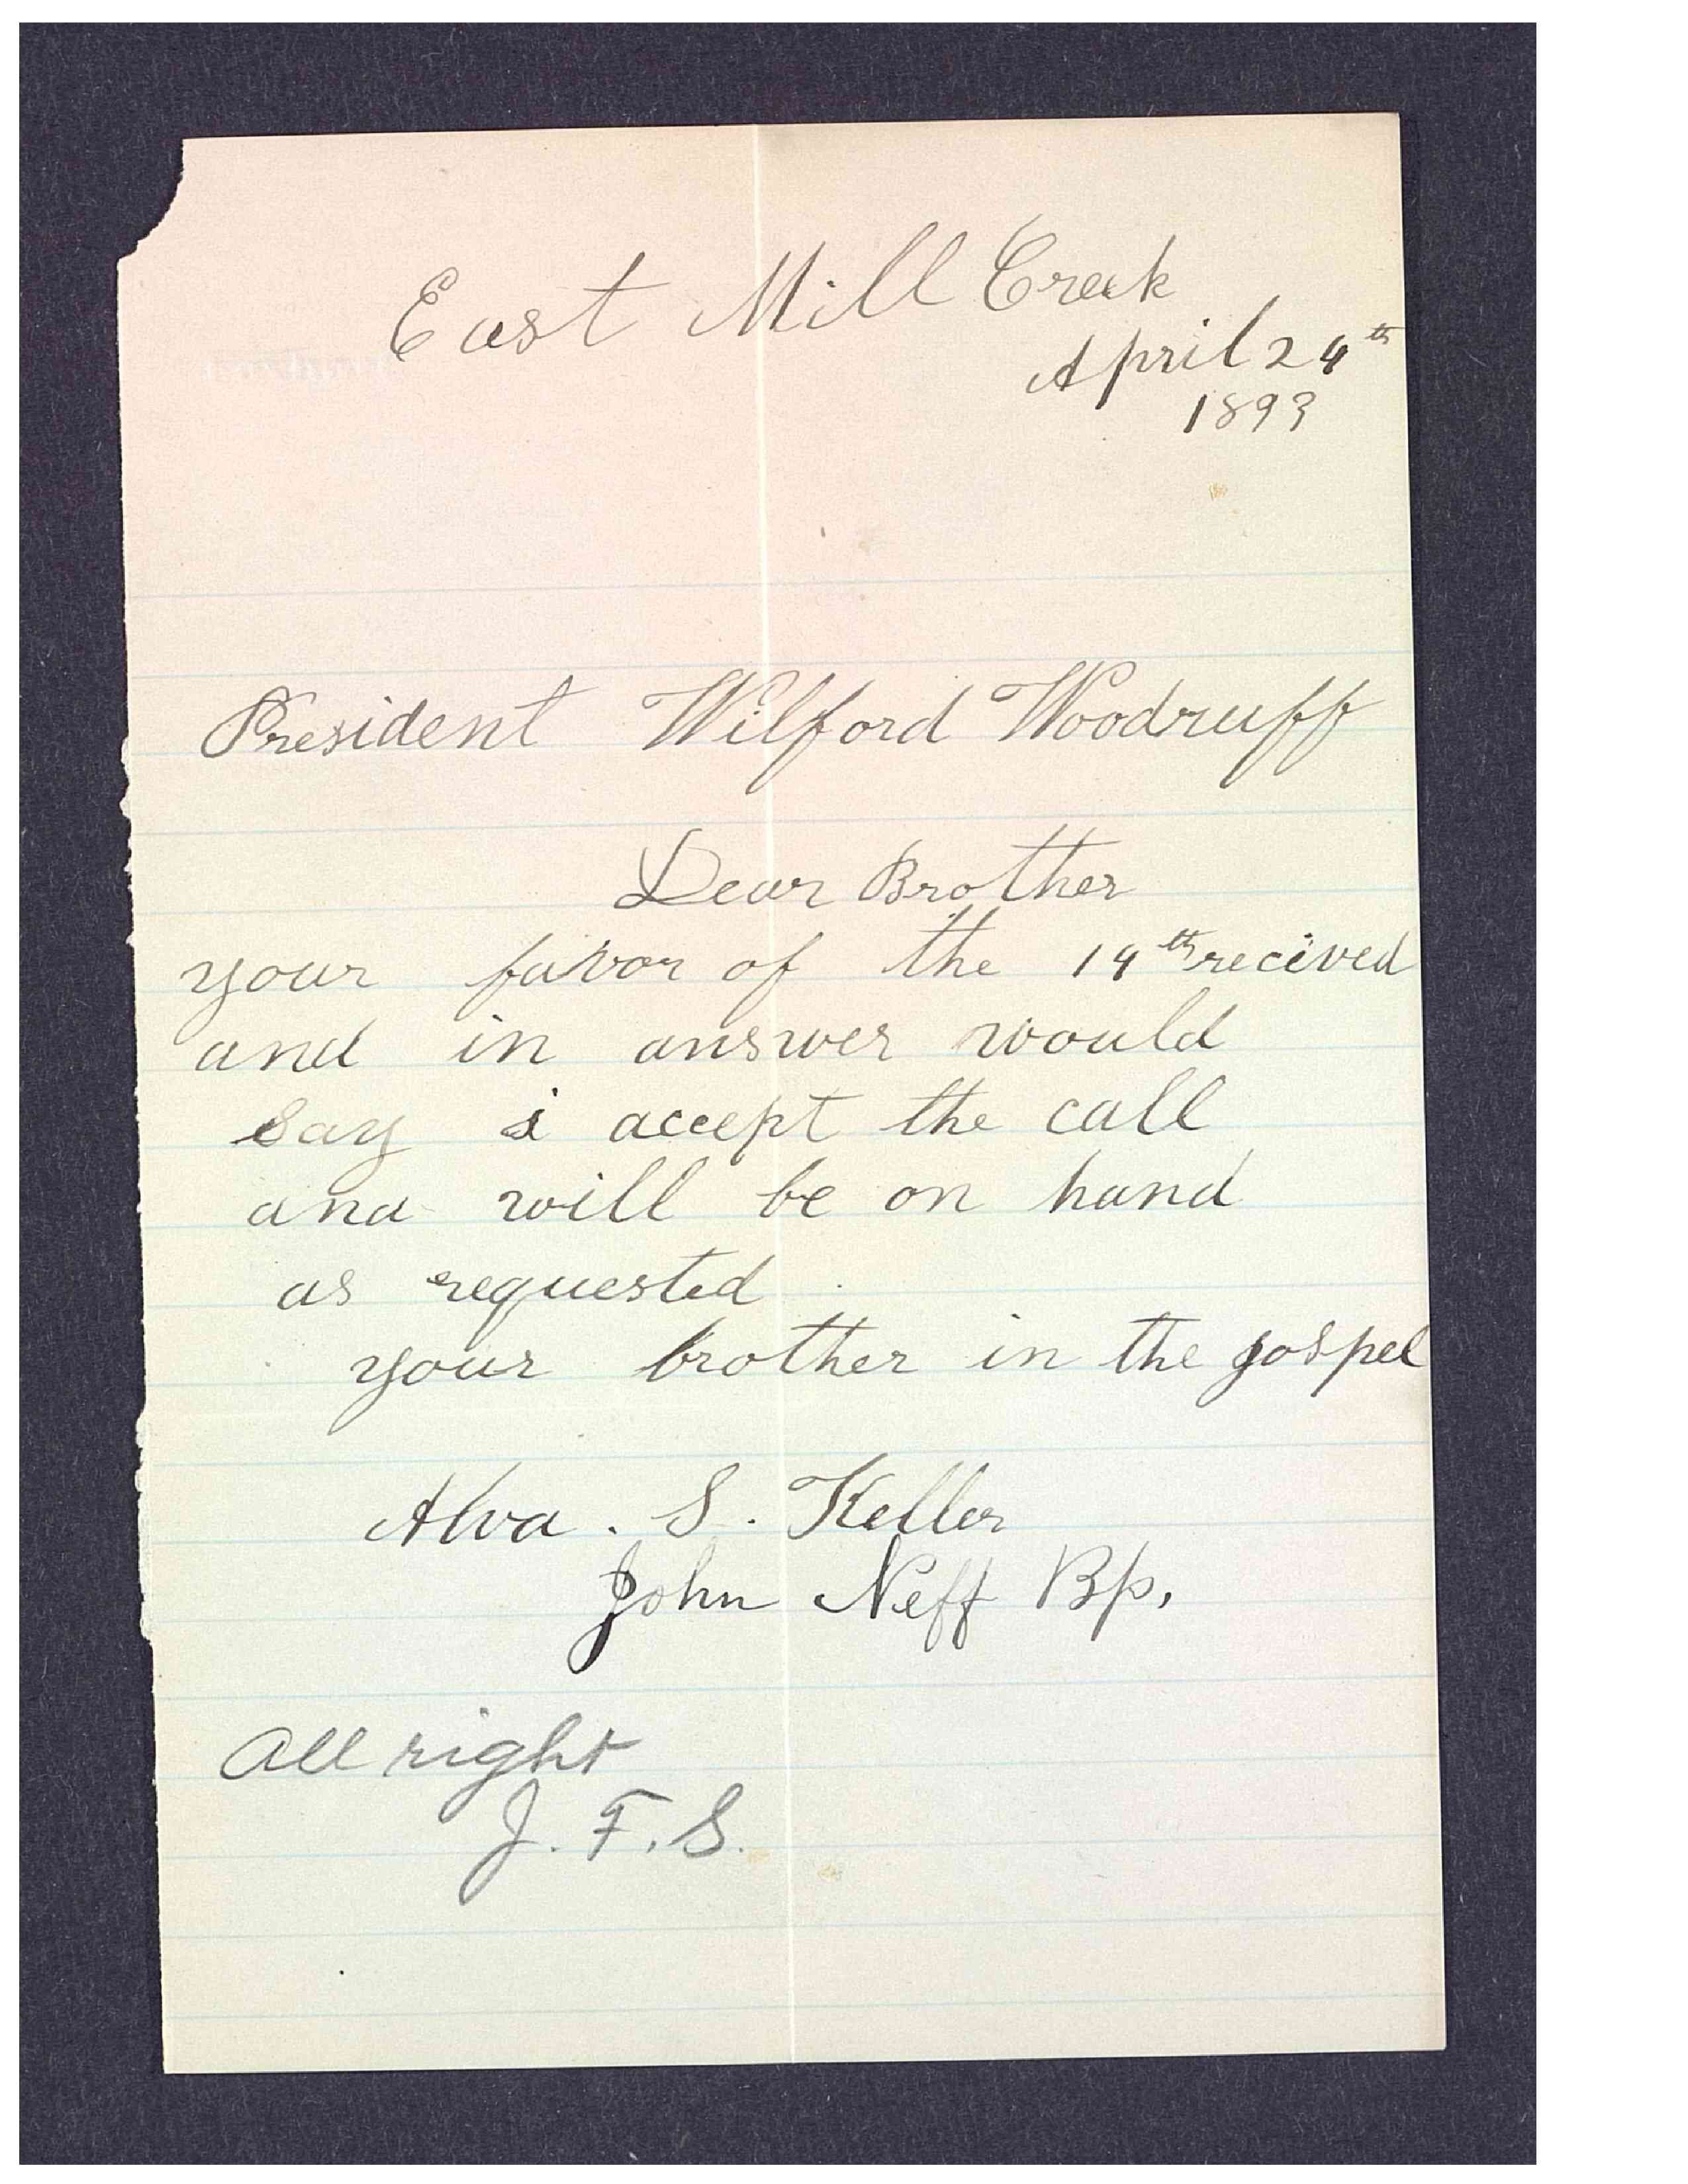 East Mill Creek
April 24th
1893
President Wilford Woodruff
Dear Brother
your favor of the 14th recived
and in answer would
say i accept the call
and will be on hand
as requested
your brother in the gospel
Alva . S. Keller
John Neff Bp.
All right
J. F. S.